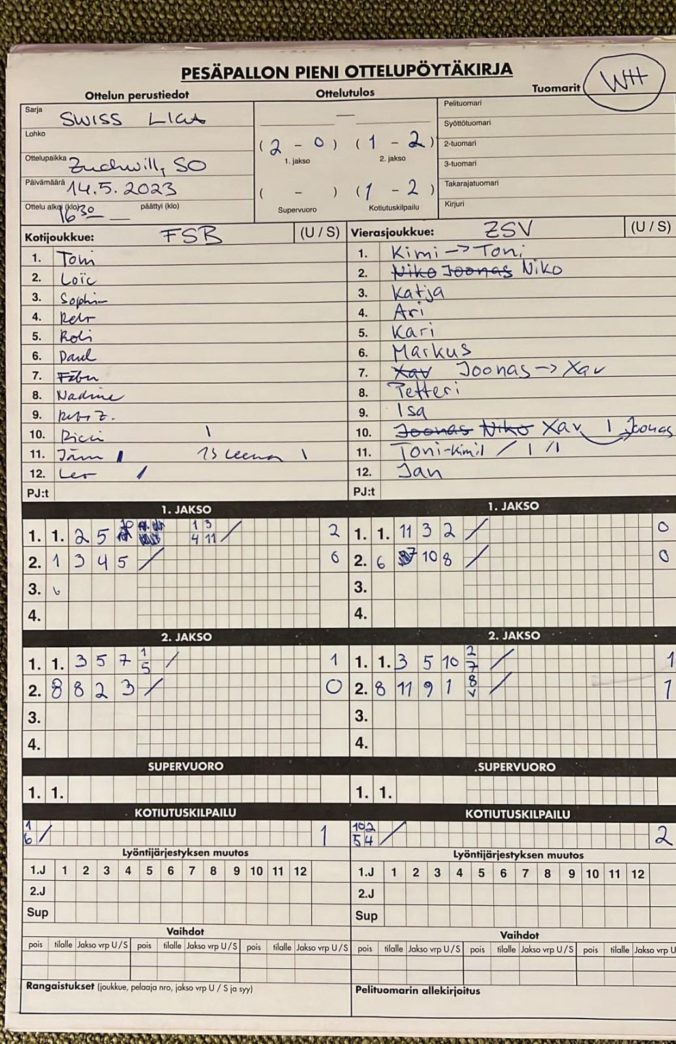 PESÄPALLON PIENI OTTELUPÖYTÄKIRJA
Ottelun perustiedot Ottelutulos Tuomarit WH
Sarja SWISS LIGA
Lohko
Ottelupaikka Zuchwill, SO
Päivämäärä 14.5.2023
Ottelu alkoi (klo) 16 30 päättyi (klo)
(2 - 0) (1 - 2)
1. jakso 2. jakso
( - ) (1 - 2)
Supervuoro Kotiutuskilpailu
Pelituomari
Syöttötuomari
2-tuomari
3-tuomari
Takarajatuomari
Kirjuri
Kotijoukkue: FSB (U / S) Vierasjoukkue: ZSV (U / S)
1. Toni 1. Kimi -> Toni
2. Loïc 2. Niko Joonas Niko
3. 3. Katja
4. 4. Ari
5. 5. Kari
6. Paul 6. Markus
7. 7. Xav Joonas -> Xav
8. Nadine 8. Petteri
9. 9. Isa
10. 10. Joonas Niko Xav | Joonas
11. 11. Toni-Kimi / | /|
12. / 12. Jan
PJ:t PJ:t
1. JAKSO 1. JAKSO
1. 1. 2 5 1 3 4 11 / 2 1. 1. 11 3 2 / 0
2. 1 3 4 5 / 0 2. 6 7 10 8 / 0
3. 3.
4. 4.
2. JAKSO 2. JAKSO
1. 1. 3 5 7 1 5 / 1 1. 1. 3 5 10 2 7 / 1
2. 8 8 2 3 / 0 2. 8 11 9 1 8 / 1
3. 3.
4. 4.
SUPERVUORO SUPERVUORO
1. 1. 1. 1.
KOTIUTUSKILPAILU KOTIUTUSKILPAILU
1 6 / 1 10 2 5 4 / 2
Lyöntijärjestyksen muutos Lyöntijärjestyksen muutos
1.J 1 2 3 4 5 6 7 8 9 10 11 12 1.J 1 2 3 4 5 6 7 8 9 10 11 12
2.J 2.J
Sup Sup
Vaihdot Vaihdot
pois tilalle Jakso vrp U / S pois tilalle Jakso vrp U / S pois tilalle Jakso vrp U / S pois tilalle Jakso vrp U / S pois tilalle Jakso vrp U / S pois tilalle Jakso vrp U
Rangaistukset (joukkue, pelaaja nro, jakso vrp U / S ja syy) Pelituomarin allekirjoitus